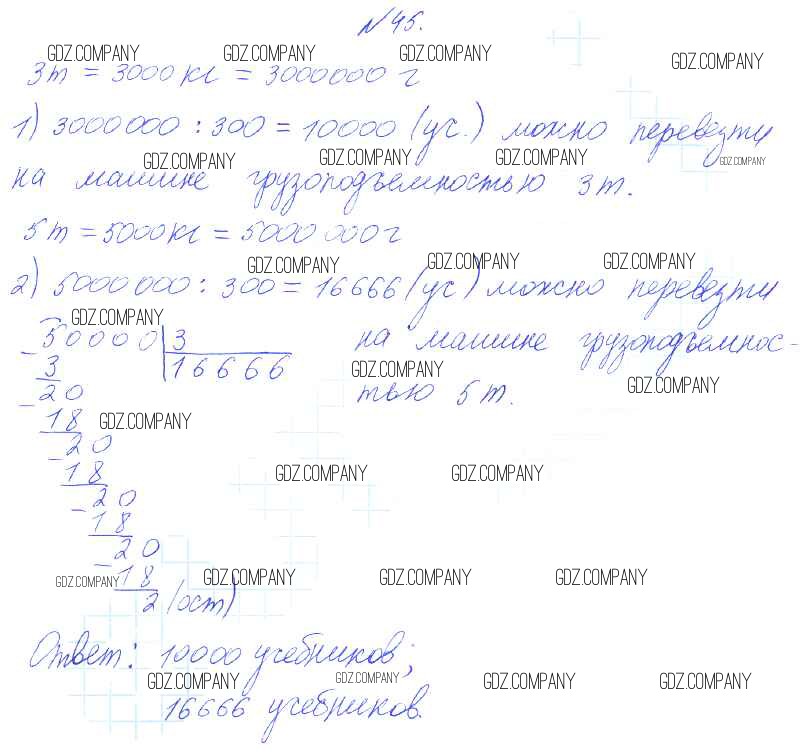 №45.
GDZ.COMPANY GDZ.COMPANY GDZ.COMPANY GDZ.COMPANY
3т = 3000кг = 3000000 г
1) 3000000 : 300 = 10000 (уч.) можно перевезти
GDZ.COMPANY GDZ.COMPANY GDZ.COMPANY GDZ.COMPANY
на машине грузоподъемностью 3т.
5т = 5000кг = 5000000г
GDZ.COMPANY GDZ.COMPANY GDZ.COMPANY
2) 5000000 : 300 = 16666 (уч) можно перевезти
GDZ.COMPANY
50000 3 на машине грузоподъемнос-
- 3 16666
GDZ.COMPANY GDZ.COMPANY
20 тью 5т.
- 18 GDZ.COMPANY
20
- 18 GDZ.COMPANY GDZ.COMPANY
20
- 18
20
- 18
GDZ.COMPANY GDZ.COMPANY GDZ.COMPANY GDZ.COMPANY
2 (ост)
Ответ: 10000 учебников;
GDZ.COMPANY GDZ.COMPANY GDZ.COMPANY GDZ.COMPANY
16666 учебников.